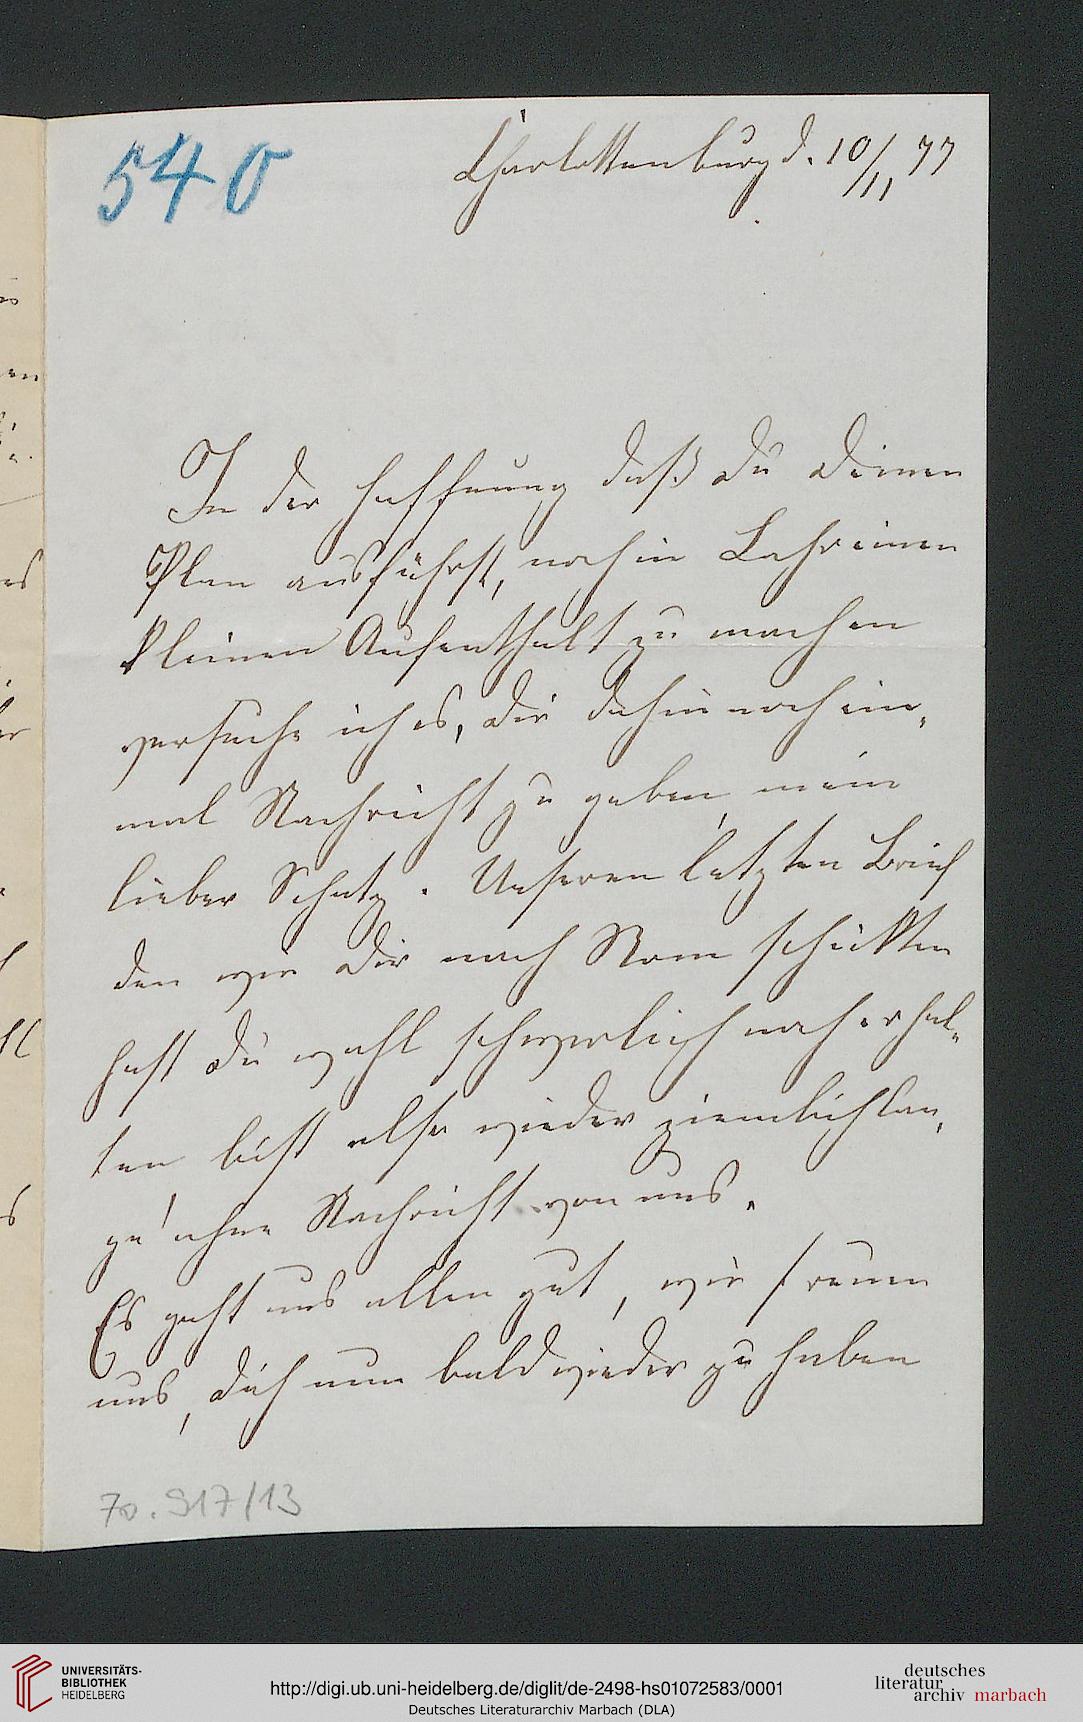 540
Charlottenburg d. 10/11 77
In der Hoffnung daß Du Deinen
Plan ausführst, noch in Lahr einen
kleinen Aufenthalt zu machen
versuche ich es, Dir dahin noch ein-
mal Nachricht zu geben, mein
lieber Schatz. Unseren letzten Brief
den wir Dir nach Rom schickten
hast Du wohl schwerlich noch erhal-
ten bist also wieder ziemlich lan-
ge ohne Nachricht von uns.
Es geht uns allen gut, wir freuen
uns, Dich nun bald wieder zu haben
70.917/13
UNIVERSITÄTS-
BIBLIOTHEK
HEIDELBERG
http://digi.ub.uni-heidelberg.de/diglit/de-2498-hs01072583/0001
Deutsches Literaturarchiv Marbach (DLA)
deutsches
literatur
archiv marbach